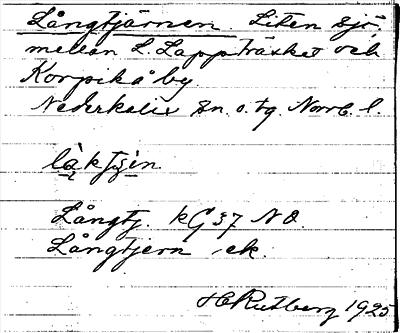 Långtjärnen. Liten sjö
mellan L. Lappträsket och
Korpikå by
Nederkalix sn. o. tg. Norrb. l.
Långtj. kG 37 NO.
Långtjern, ek.
H Rutberg 1925